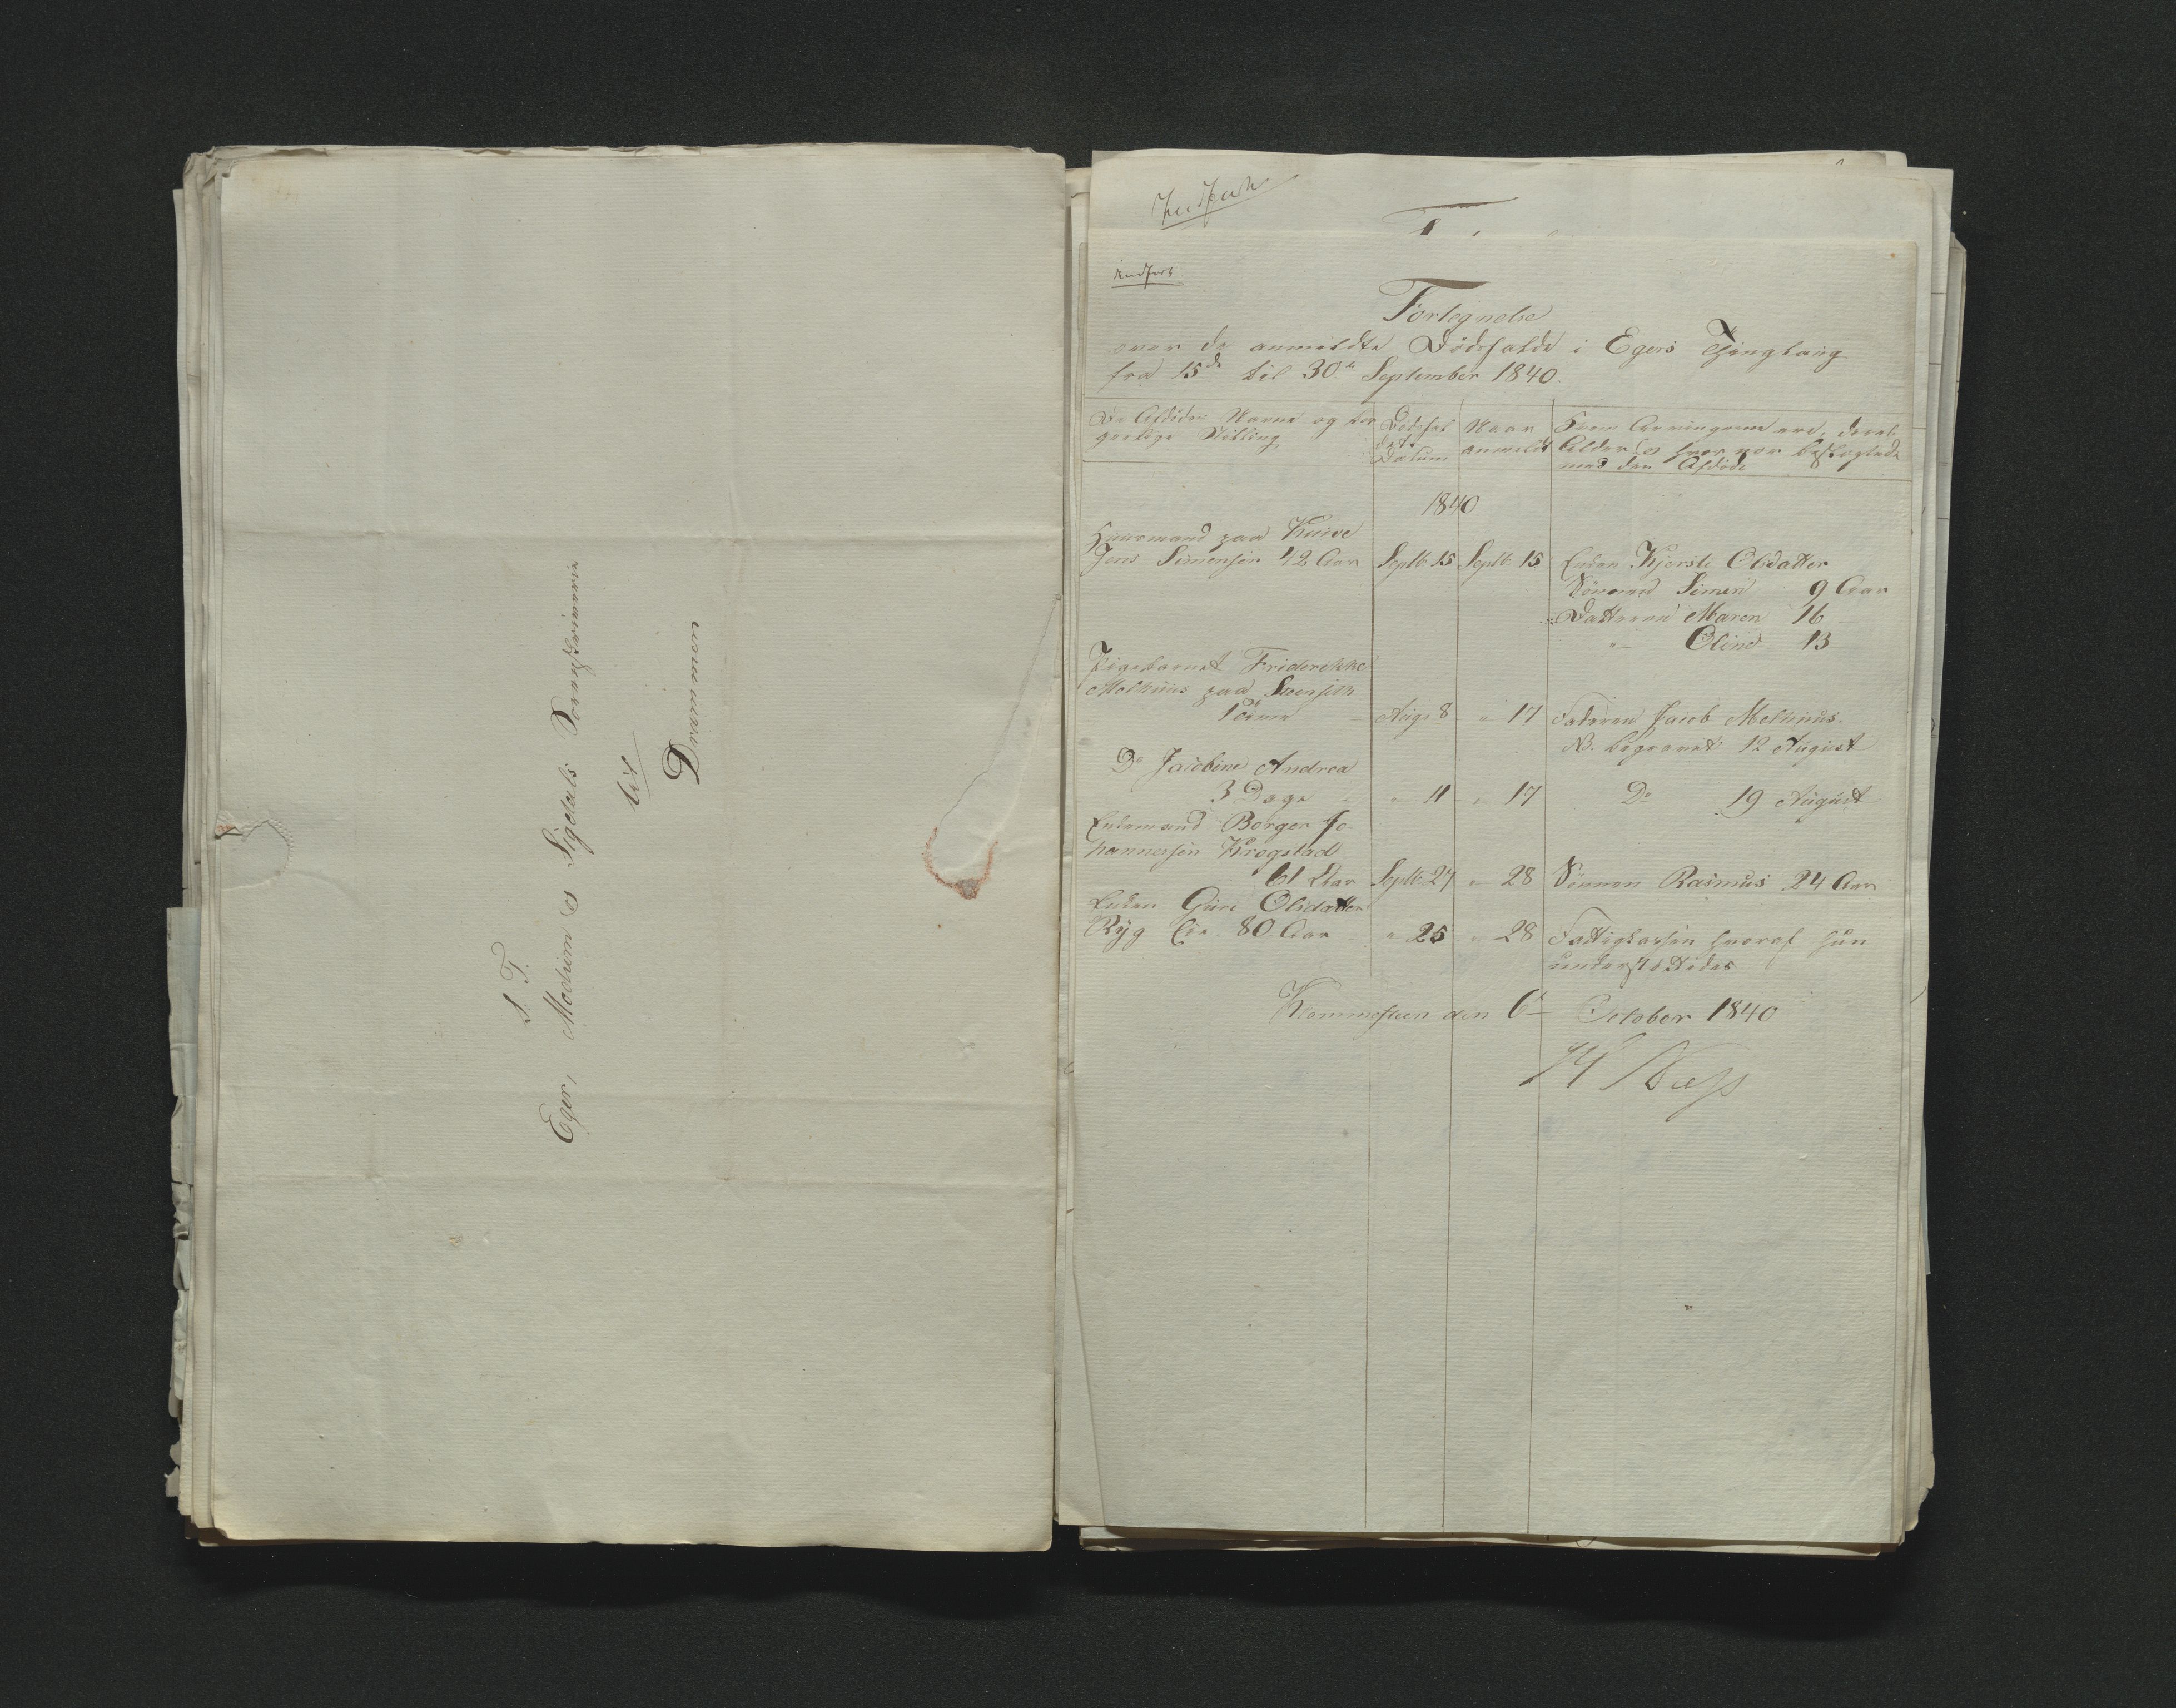 S. T.
Eger, Modum og Sigdals Sorenskriverie
til
Drammen
Indført
Fortegnelse
over de anmeldte Dödsfald i Egers Thinglaug
fra 15de til 30te September 1840.
De Afdödes Navne og bor-
gerlige Stilling
Dödsfal
dets
Datum
Naar
anmeldt
Hvem Arvingerne ere, deres
Alder og hvor nær beslægtede
med den Afdöde
1840
Huusmand paa
Jens Simensen 42 Aar Septb 15 Septb 15 Enken Kjersti Olsdatter
Sönnen Simen 9 Aar
Datteren Maren 16
"— Oline 13
Pigebarnet Friderikke
Melhuus paa
Aug. 8 " 17 Faderen Jacob Melhuus.
NB. begravet 12 August
Do Jacobine Andrea
3 Dage " 11 " 17 Do 19 August
Enkemand Borger Jo-
hannessen Krogstad
61 Aar Septb. 27 " 28 Sönnen Rasmus 24 Aar
Enken Guri Olsdatter
Ryg Cir. 80 Aar " 25 " 28 Fattigkassen hvoraf hun
understöttedes
den 6te October 1840